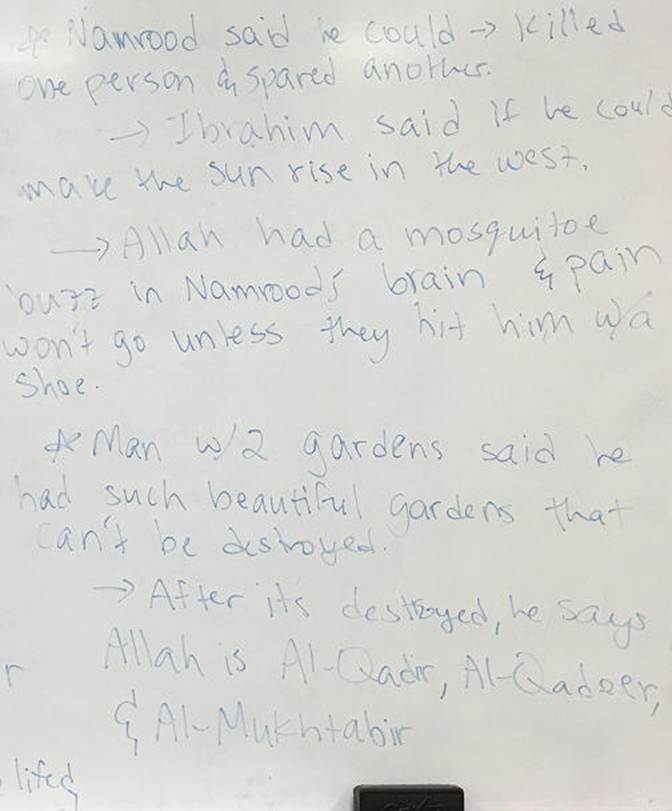 * Namrood said he could → killed
one person & spared another.
→ Ibrahim said if he could
make the sun rise in the west.
→ Allah had a mosquitoe
buzz in Namrood's brain & pain
won't go unless they hit him w/a
shoe.
* Man w/2 gardens said he
had such beautiful gardens that
can't be destroyed.
→ After it's destroyed, he says
Allah is Al-Qadir, Al-Qadeer,
r
& Al-Mukhtabir
lifed